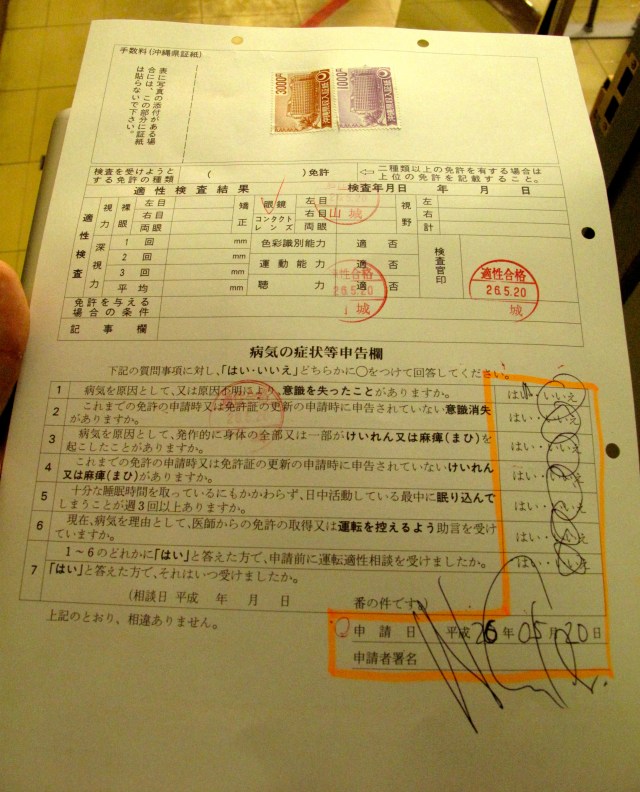 手数料(沖縄県証紙)
表に写真の添付がある場
合には、この部分に証紙
は貼らないで下さい。
3000円
1000円
検査を受けようと
する免許の種類
( )免許
⇦ 二種類以上の免許を有する場合は
上位の免許を記載すること。
適性検査結果
検査年月日 年 月 日
適性検査
視力
裸眼
左目
右目
両眼
矯正
眼鏡
コンタクト
レンズ
左目
右目
両眼
視野
左
右
計
深視力
1 回 mm
2 回 mm
3 回 mm
平均 mm
色彩識別能力 適 否
運動能力 適 否
聴力 適 否
検査官印
適性合格
26.5.20
城
適性合格
26.5.20
城
山城
免許を与える
場合の条件
記事欄
病気の症状等申告欄
下記の質問事項に対し、「はい・いいえ」どちらかに○をつけて回答してください。
1 病気を原因として、又は原因不明により、意識を失ったことがありますか。 はい・いいえ
2 これまでの免許の申請時又は免許証の更新の申請時に申告されていない意識消失
がありますか。 はい・いいえ
3 病気を原因として、発作的に身体の全部又は一部がけいれん又は麻痺(まひ)を
起こしたことがありますか。 はい・いいえ
4 これまでの免許の申請時又は免許証の更新の申請時に申告されていないけいれん
又は麻痺(まひ)がありますか。 はい・いいえ
5 十分な睡眠時間を取っているにもかかわらず、日中活動している最中に眠り込んで
しまうことが週3回以上ありますか。 はい・いいえ
6 現在、病気を理由として、医師からの免許の取得又は運転を控えるよう助言を受け
ていますか。 はい・いいえ
7 1～6のどれかに「はい」と答えた方で、申請前に運転適性相談を受けましたか。 はい・いいえ
「はい」と答えた方で、それはいつ受けましたか。
(相談日 平成 年 月 日 番の件です)
上記のとおり、相違ありません。
申請日 平成26年05月20日
申請者署名